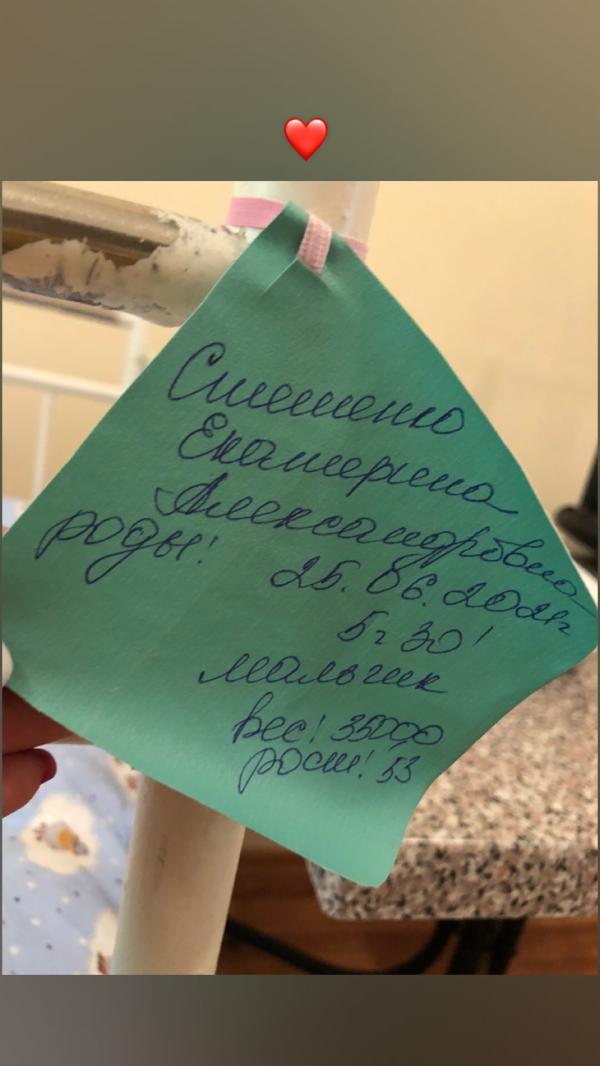 Екатерина
Александровна
роды!
25.06.202 г
5 г 30'
мальчик
вес! 3500,0
рост! 53